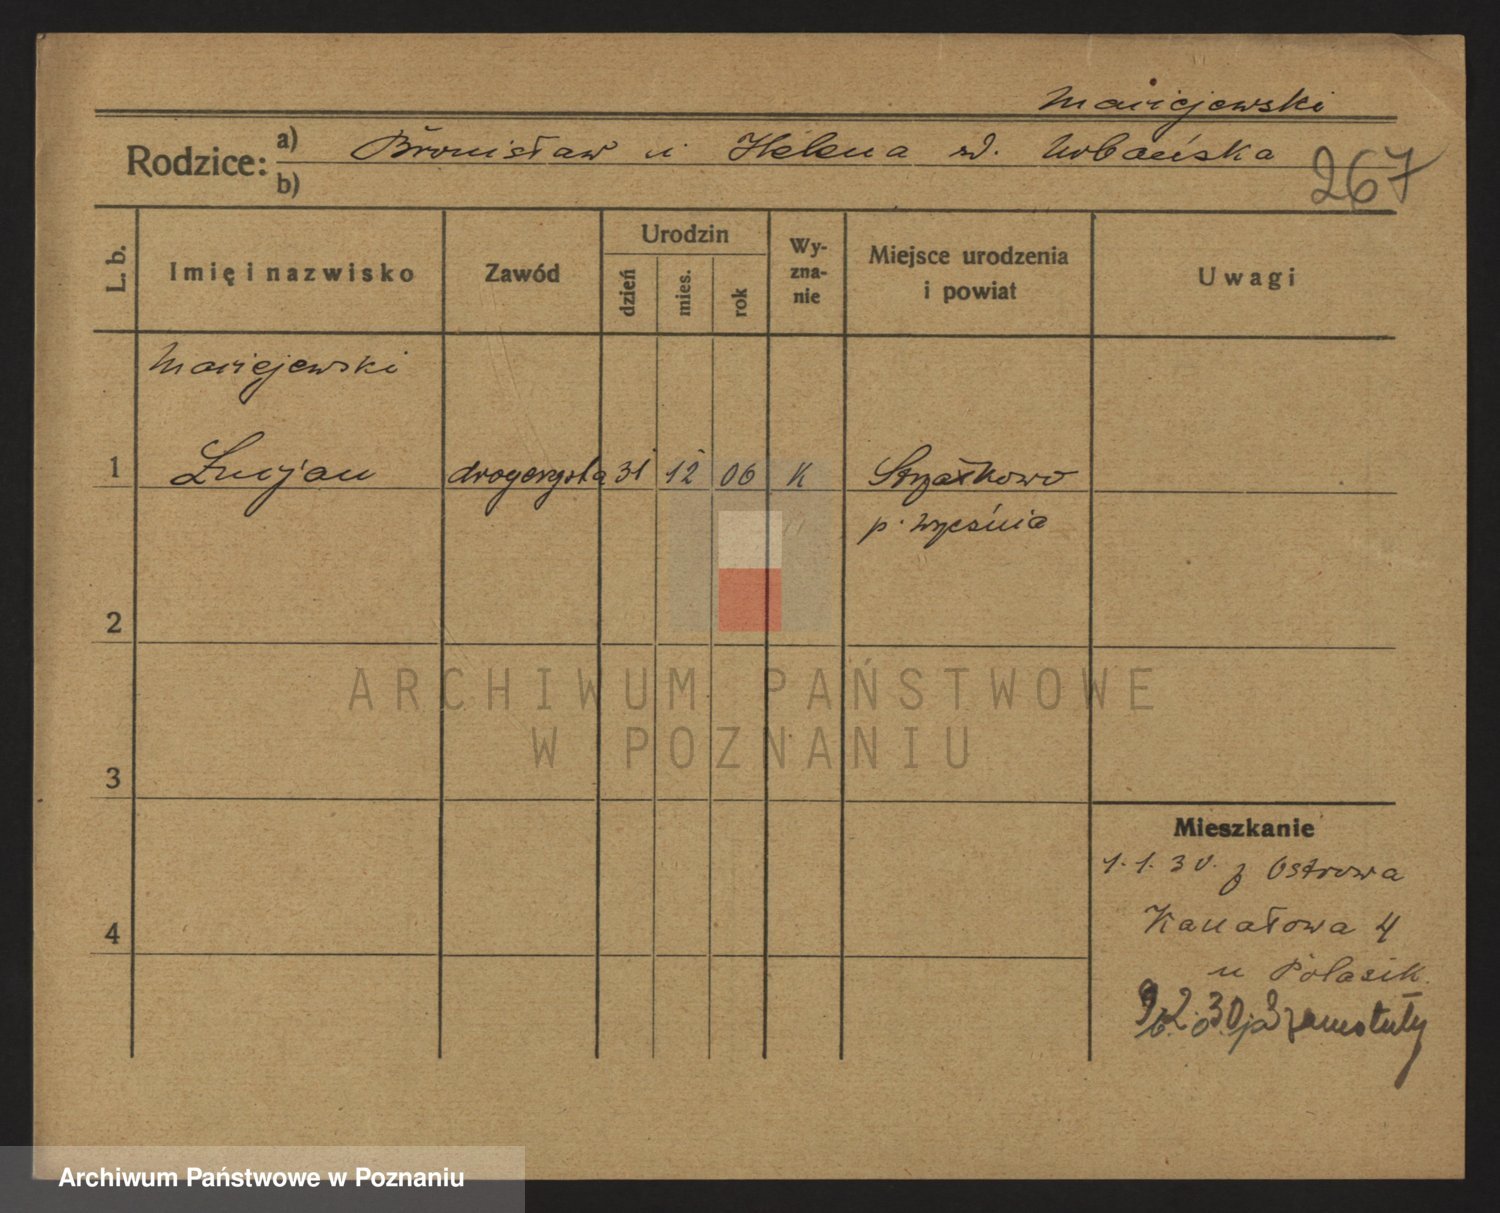 Maciejewski
Rodzice: a) Bronisław i Helena zd. Urbańska
b)
267
L. b.
Imię i nazwisko
Zawód
Urodzin
dzień
mies.
rok
Wy-
zna-
nie
Miejsce urodzenia
i powiat
Uwagi
Maciejewski
1 Lucjan drogerzysta 31 12 06 K Strzałkowo
p. Września
2
3
4
Mieszkanie
1.1.30. z Ostrowa
Kanałowa 4
u Polasik
9.2.30 Szamotuły
ARCHIWUM PAŃSTWOWE
W POZNANIU
Archiwum Państwowe w Poznaniu